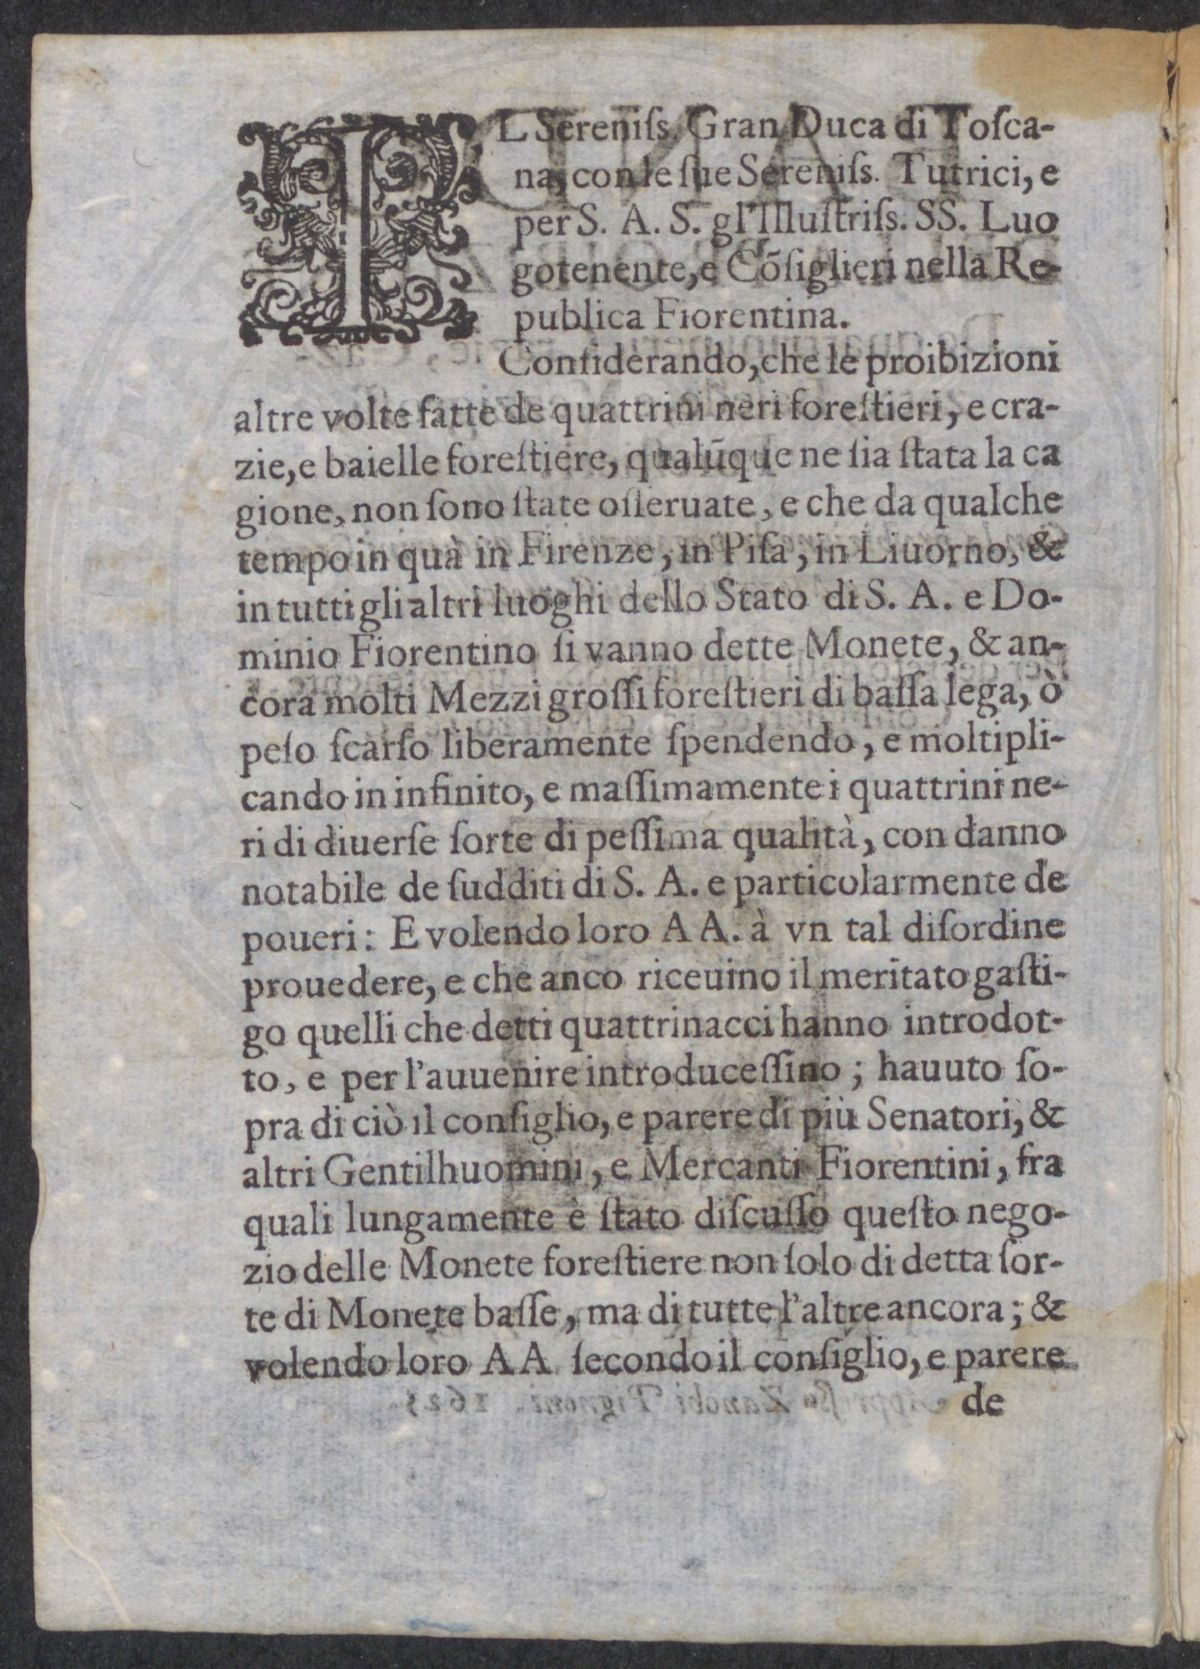 IL Sereniſs. Gran Duca di Toſca-
na, con le ſue Sereniſs. Tutrici, e
per S. A. S. gl'Illuſtriſs. SS. Luo
gotenente, e Cõſiglieri nella Re-
publica Fiorentina.
Conſiderando, che le proibizioni
altre volte fatte de quattrini neri foreſtieri, e cra-
zie, e baielle foreſtiere, qualũque ne ſia ſtata la ca
gione, non ſono ſtate oſſeruate, e che da qualche
tempo in quà in Firenze, in Piſa, in Liuorno, &
in tutti gli altri luoghi dello Stato di S. A. e Do-
minio Fiorentino ſi vanno dette Monete, & an-
cora molti Mezzi groſſi foreſtieri di baſſa lega, ò
peſo ſcarſo liberamente ſpendendo, e moltipli-
cando in infinito, e maſſimamente i quattrini ne-
ri di diuerſe ſorte di peſſima qualità, con danno
notabile de ſudditi di S. A. e particolarmente de
poueri: E volendo loro A A. à vn tal diſordine
prouedere, e che anco riceuino il meritato gaſti-
go quelli che detti quattrinacci hanno introdot-
to, e per l'auuenire introduceſſino; hauuto ſo-
pra di ciò il conſiglio, e parere di più Senatori, &
altri Gentilhuomini, e Mercanti Fiorentini, fra
quali lungamente è ſtato diſcuſſo queſto nego-
zio delle Monete foreſtiere non ſolo di detta ſor-
te di Monete baſſe, ma di tutte l'altre ancora; &
volendo loro A A ſecondo il conſiglio, e parere
de